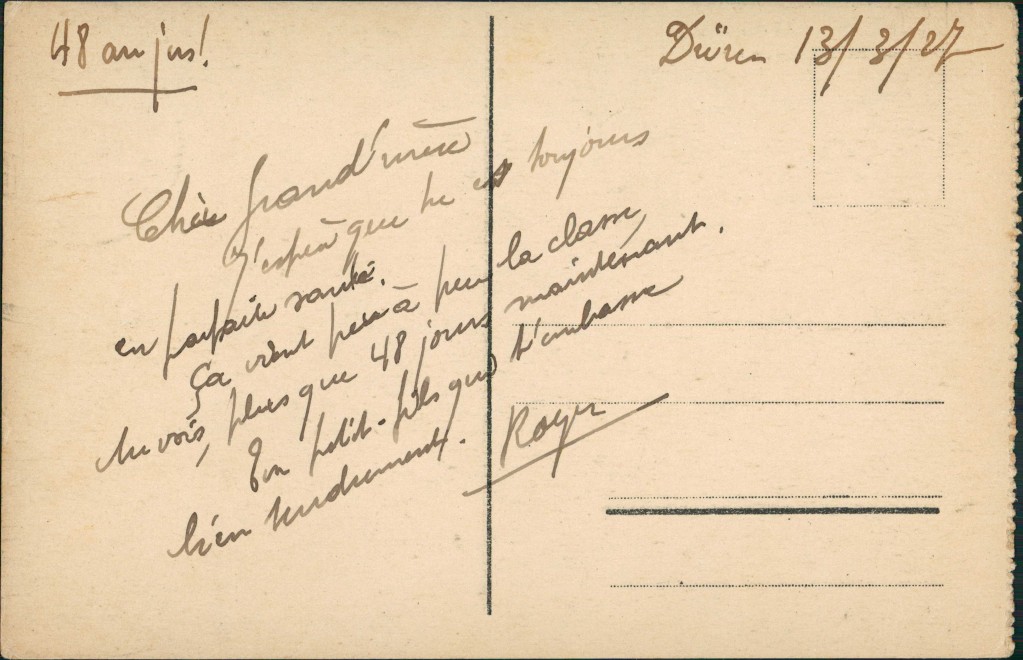 48 au jus!
Düren 13/3/27
Chère Grand'mère
J'espère que tu es toujours
en parfaite santé.
Ça vient peu à peu la classe,
tu vois, plus que 48 jours maintenant.
Ton petit-fils qui t'embrasse
bien tendrement. Roger